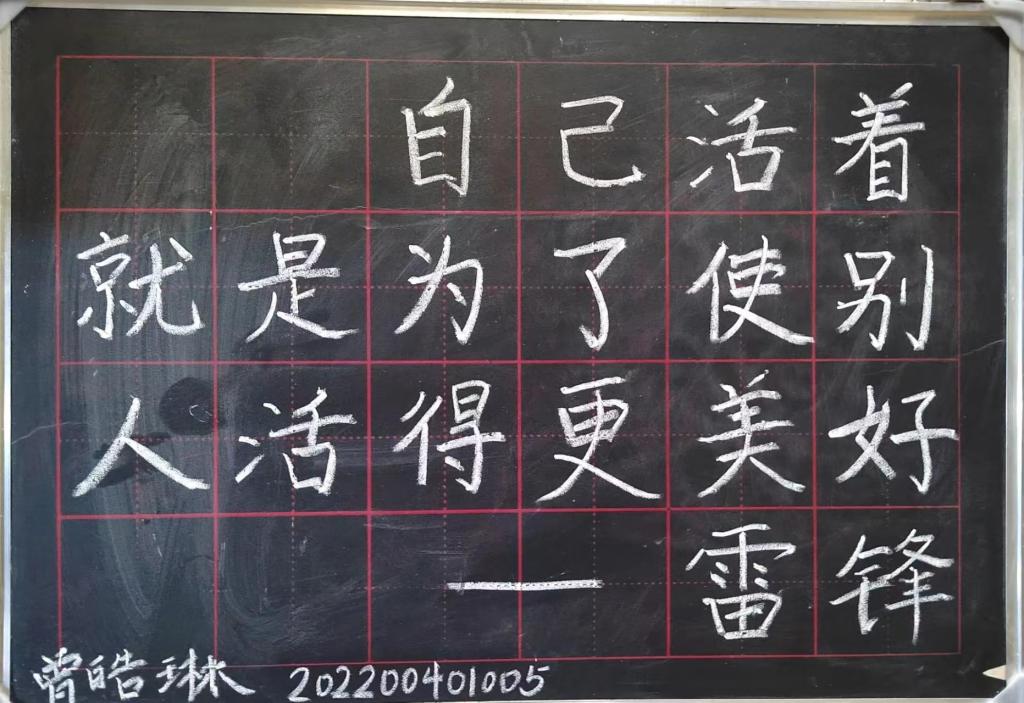 自己活着
就是为了使别
人活得更美好
—雷锋
曾皓琳 202200401005